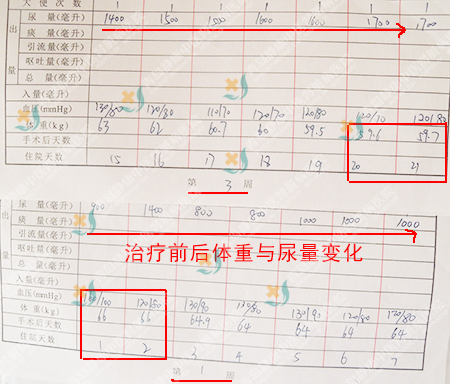 大便次数 1 1 1 1 1 1 1
出 尿 量(毫升) 1400 1500 1500 1600 1600 1700 1700
痰 量(毫升)
引流量(毫升)
呕吐量(毫升)
量 总 量(毫升)
入量(毫升)
血压(mmHg) 130/80 120/80 110/70 120/70 120/80 120/80
体 重(kg) 63 62 60.7 60 59.5 59.6 59.7
手术后天数
住院天数 15 16 17 18 19 20 21
第 3 周
出 尿 量(毫升) 900 1400 800 800 1000 1000 1000
痰 量(毫升)
引流量(毫升)
治疗前后体重与尿量变化
呕吐量(毫升)
量 总 量(毫升)
入量(毫升)
血压(mmHg) 120/80 130/90 130/80 130/90 120/80 120/80
体 重(kg) 66 66 64.9 64 64 64 64
手术后天数
住院天数 1 2 3 4 5 6 7
第 1 周